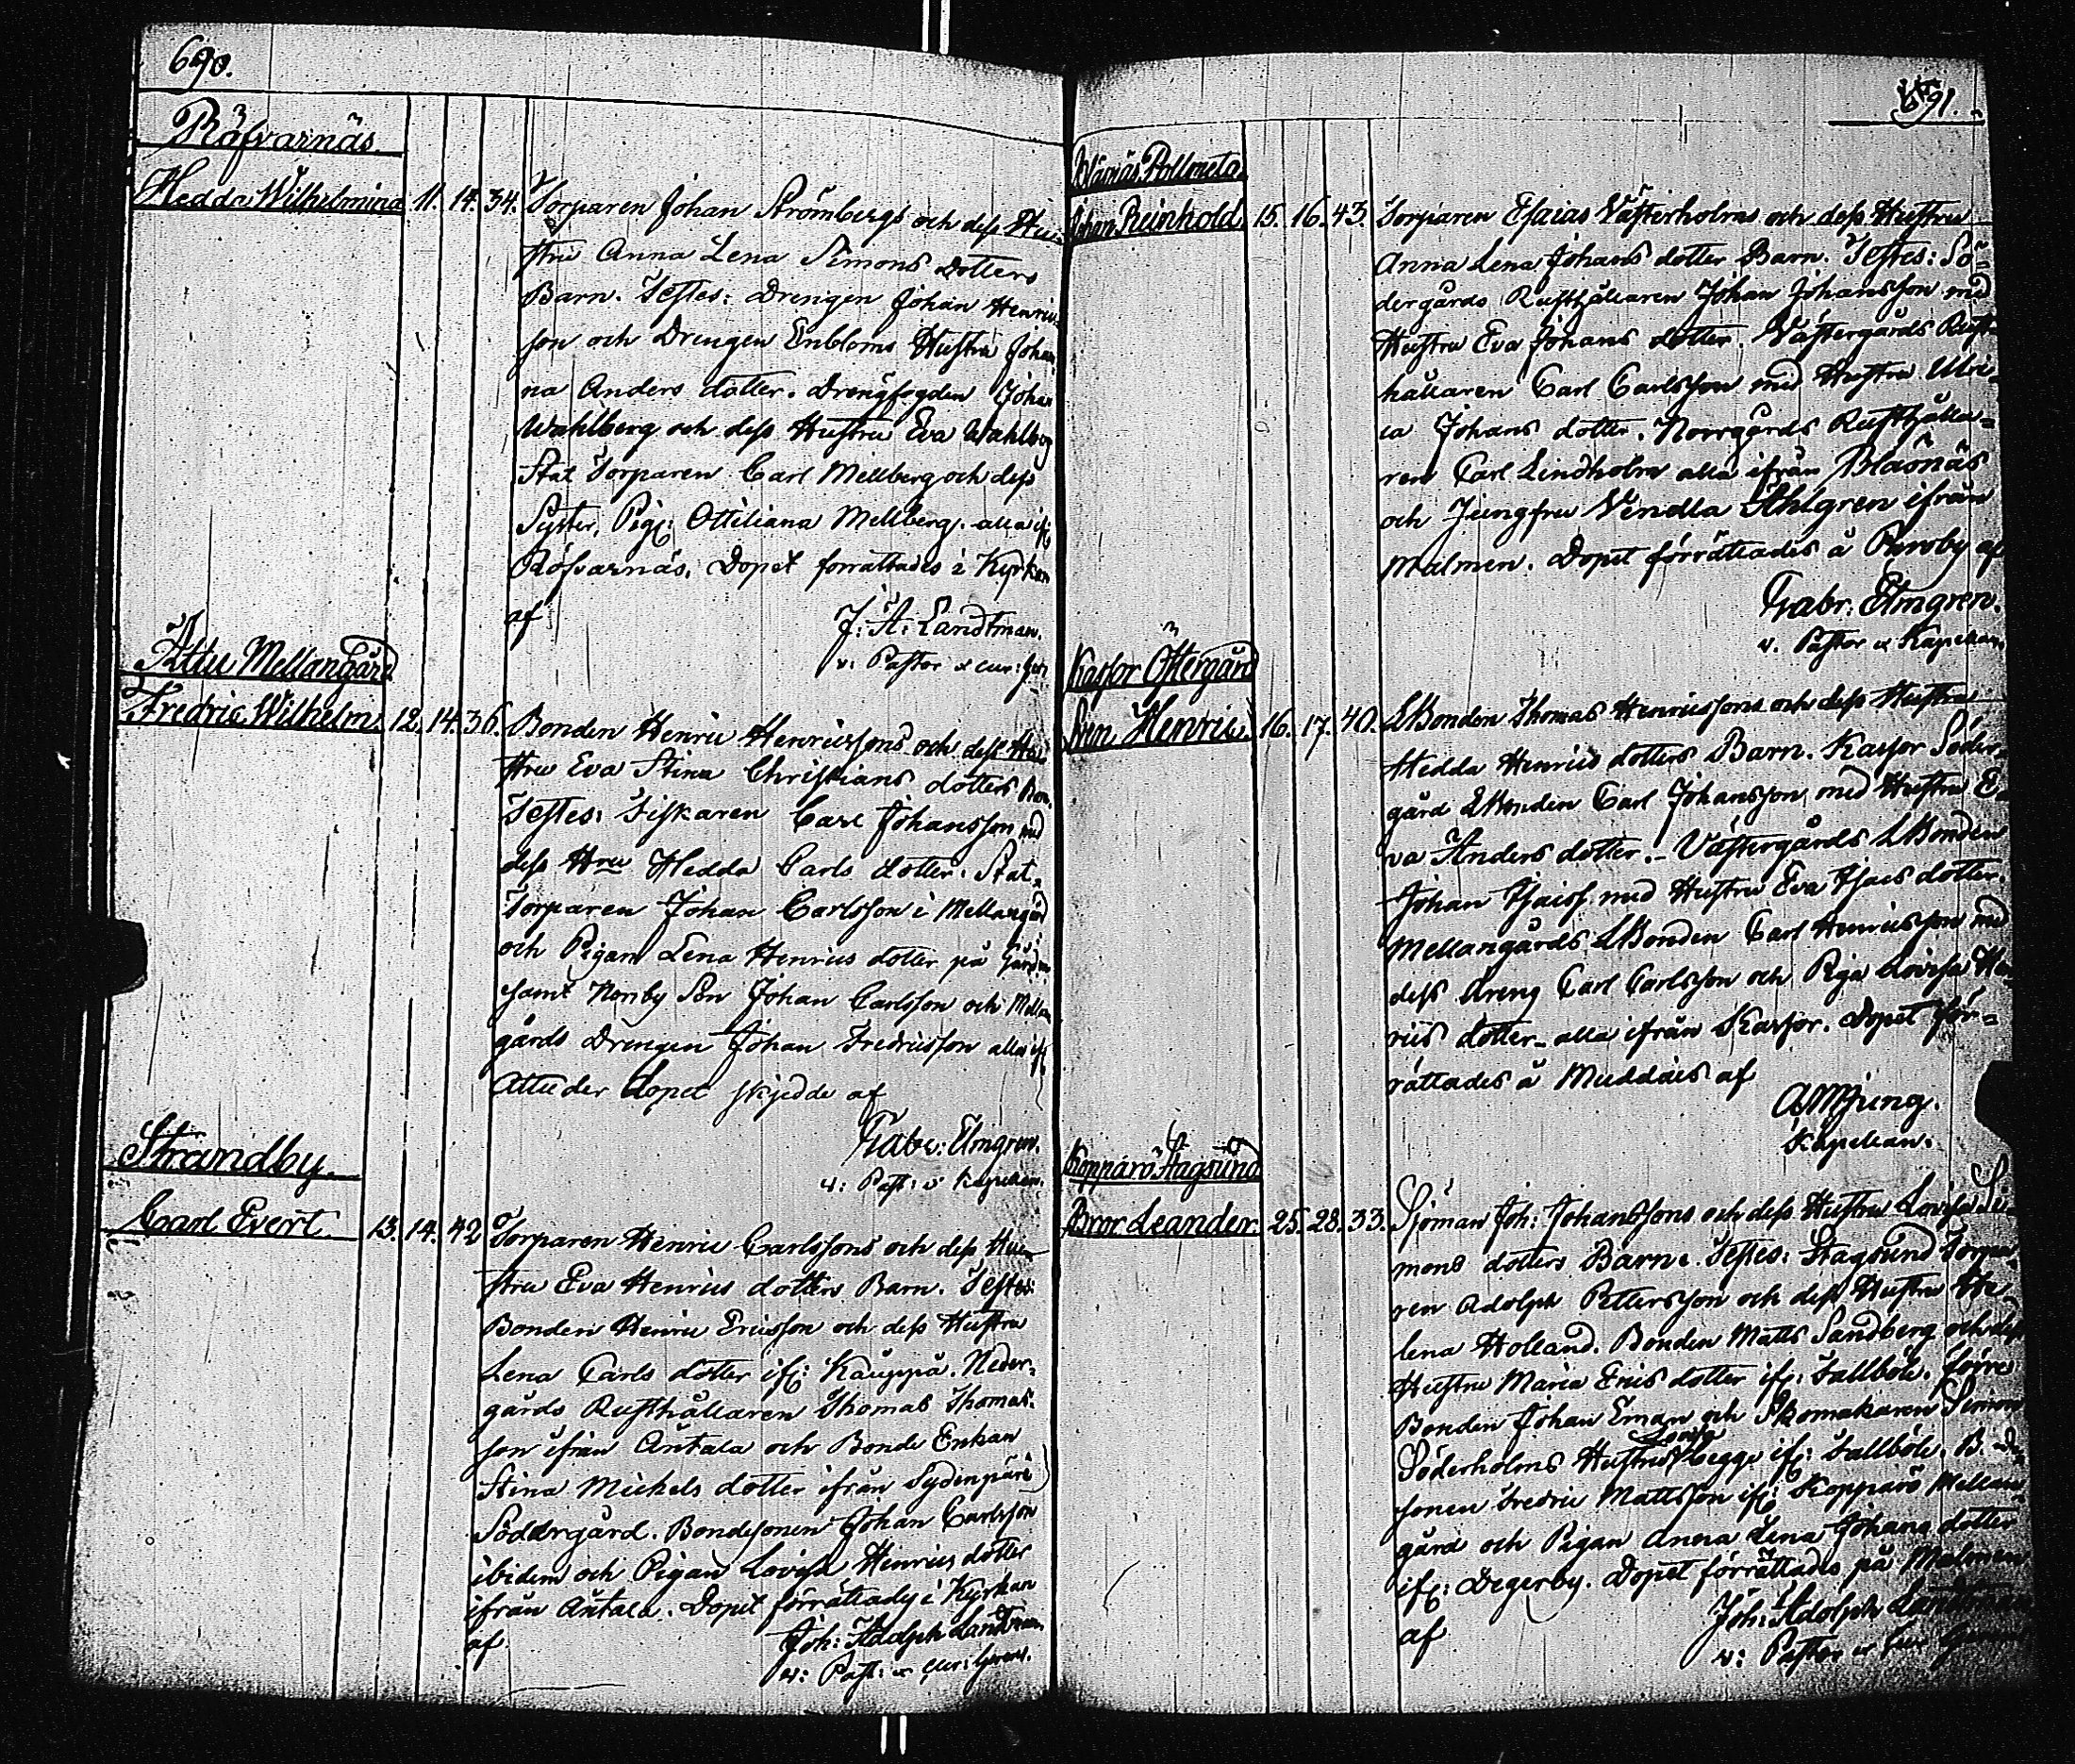 690.
Röfvarnäs.
Hedda Wilhelmina 11. 14. 34. Torparen Johan Strömbergs och dess Hu-
stru Anna Lena Simons dotters
Barn. Testes: Drengen Johan Henrics-
son och Drengen Enbloms Hustru Johan
na Anders dotter. Drengfogden Johan
Wahlberg och dess Hustru Eva Wahlberg
Stat Torparen Carl Mellberg och dess
Syster, Pig: Ottiliana Mellberg. alla if:
Röfvarnäs. Dopet forrattades i Kyrkan
af J: A: Landtman.
v: Pastor
Attu Mellangård
Fredric Wilhelm. 12. 14. 36. Bonden Henric Henricssons och dess Hu
stru Eva Stina Christians dotters Barn.
Testes: Fiskaren Carl Johansson med
dess Hru Hedda Carls dotter. Stat
Torparen Johan Carlsson i Mellangård
och Pigan Lena Henrics dotter på Gården
samt Norrby Son Johan Carlsson och Mellan
gårds Drengen Johan Fredricsson alla if:
Attu der dopet skjedde af
Gabr: Elmgren.
v: Past: o Kapellan.
Strandby.
Carl Evert. 13. 14. 42 Torparen Henric Carlssons och dess Hu
stru Eva Henrics dotters Barn. Testes:
Bonden Henric Ericsson och dess Hustru
Lena Carls dotter if: Kauppa. Neder-
gårds Rusthållaren Thomas Thomas-
son ifrån Antala och Bonde Enkan
Stina Michels dotter ifrån Sydenpäre
Södergård. Bondesonen Johan Carlsson
ibidem och Pigan Lovisa Hinrics dotter
ifrån Antala. Dopet förrättades i Kyrkan
af Joh: Adolph Landtman
v: Past:
691.
Blåsnäs Pollmeta.
Johan Reinhold. 15. 16. 43. Torparen Esaias Västerholms och dess Hustru
Anna Lena Johans dotter Barn. Testes: Sö-
dergårds Rusthållaren Johan Johansson med
Hustru Eva Johans dotter. Västergårds Rust
hållaren Carl Carlsson med Hustru Ulri-
ca Johans dotter. Norrgårds Rusthålla-
ren Carl Lindholm alla ifrån Blåsnäs
och Jungfru Vendla Ahlgren ifrån
Malmen. Dopet förrättades å Parsby af
Gabr: Elmgren.
v. Pastor o Kapellan.
Kasfor Östergård
Henric. 16. 17. 40. LBonden Thomas Henricssons och dess Hustru
Hedda Henrics dotters Barn. Kasfor Söder-
gård LBonden Carl Johansson med Hustru E-
va Anders dotter. Västergårds LBonden
Johan med Hustru Eva dotter.
Mellangårds LBonden Carl Henricsson med
dess dreng Carl Carlsson och Piga Lovisa Hen-
rics dotter alla ifrån Kasfor. Dopet för-
rättades å Muddais af
AMjung.
Kapellan.
Kopparö Stagsund
Bror Leander. 25. 28. 33. Sjöman Joh: Johanssons och dess Hustru Lovisa Si-
mons dotters Barn. Testes: Stagsund Torpa-
ren Adolph Pettersson och dess Hustru He-
lena Holland. Bonden Matts Sandberg och dess
Hustru Maria Erics dotter if: Tallböle. förre
Bonden Johan Eman och Skomakaren Simon
Söderholms Hustru Lovisa begge if: Tallböle. Bonde-
sonen Fredric Mattsson if: Kopparö Mellan-
gård och Pigan Anna Lena Johans dotter
if: Degerby. Dopet förrättades på Malmen
af Joh: Adolph Landtman
v: Pastor